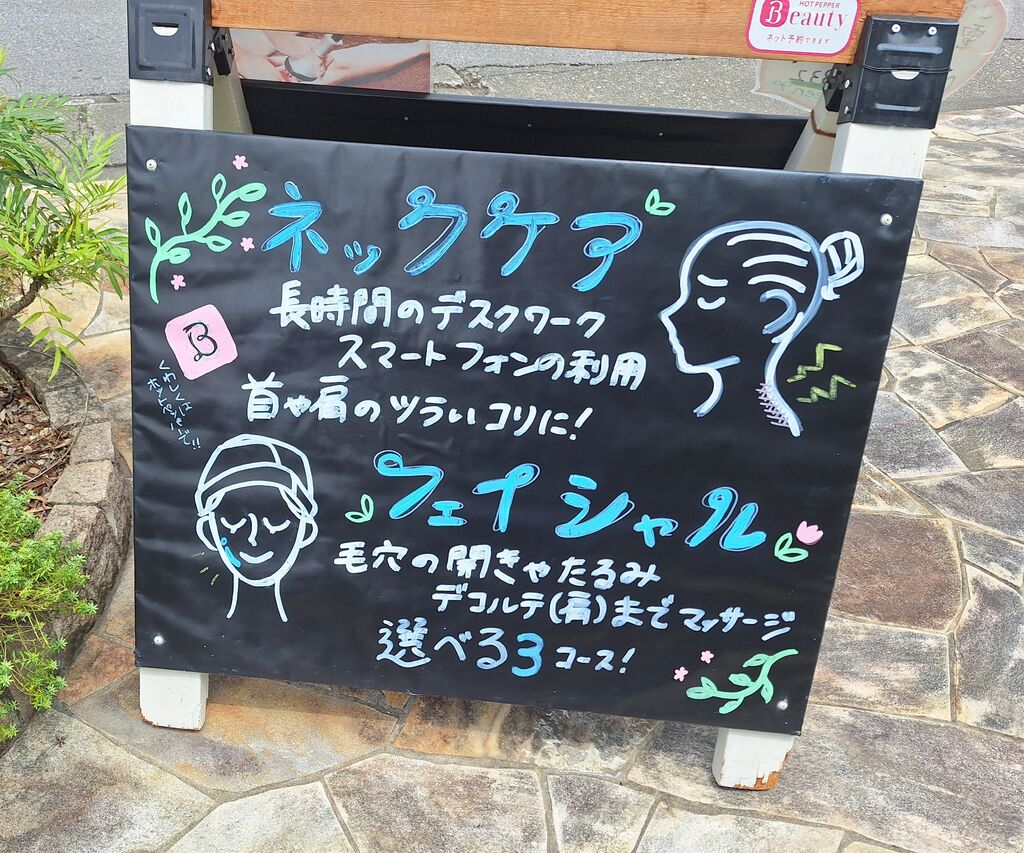 HOT PEPPER
Beauty
ネット予約できます
ネックケア
長時間のデスクワーク
スマートフォンの利用
首や肩のツラいコリに!
B
くわしくは
フェイシャル
毛穴の開きやたるみ
デコルテ(肩)までマッサージ
選べる3コース!